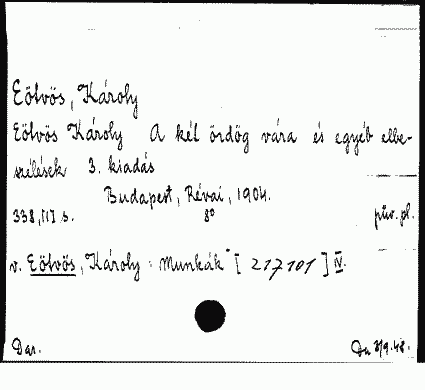 Eötvös, Károly
Eötvös Károly A két ördög vára és egyéb elbe-
szélések 3. kiadás
Budapest, Révai, 1904.
338, [1] s. 8° püv. pl.
v. Eötvös, Károly: Munkák [217101] IV.
Dar. Du 8/9.48.